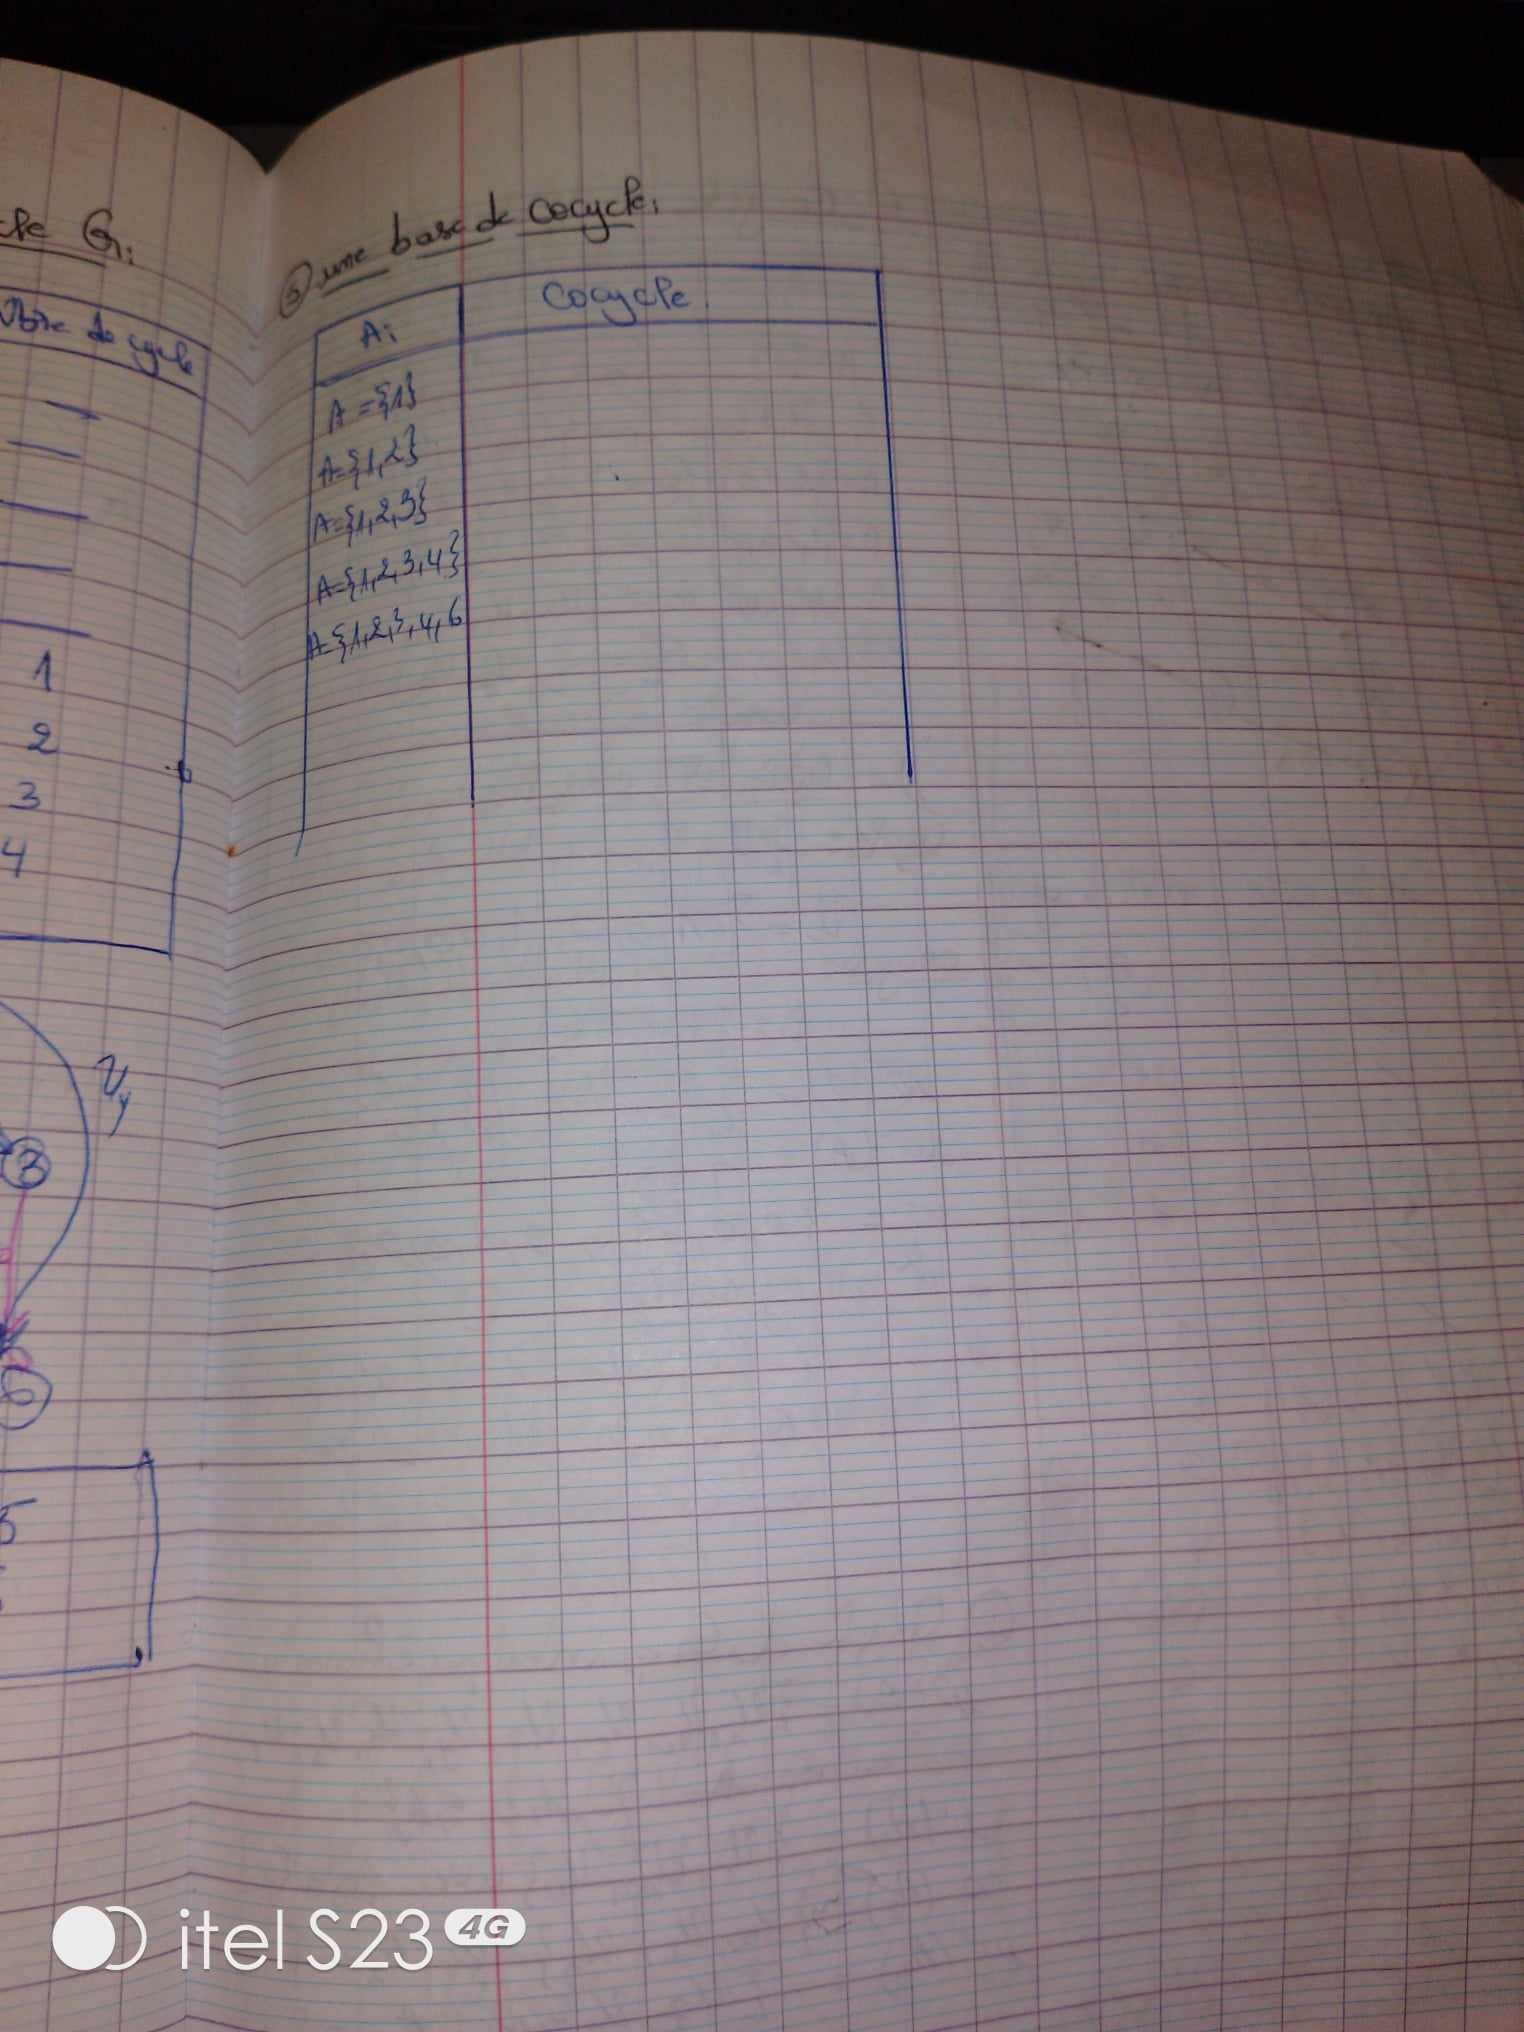 cle G:
Nbre de cycle
1
2
3
4
3
6
5
③ une base de Cocycle.
Ai
Cocycle.
A = {1}
A={1,2}
A={1,2,3}
A={1,2,3,4}
A={1,2,3,4,6
itel S23 4G